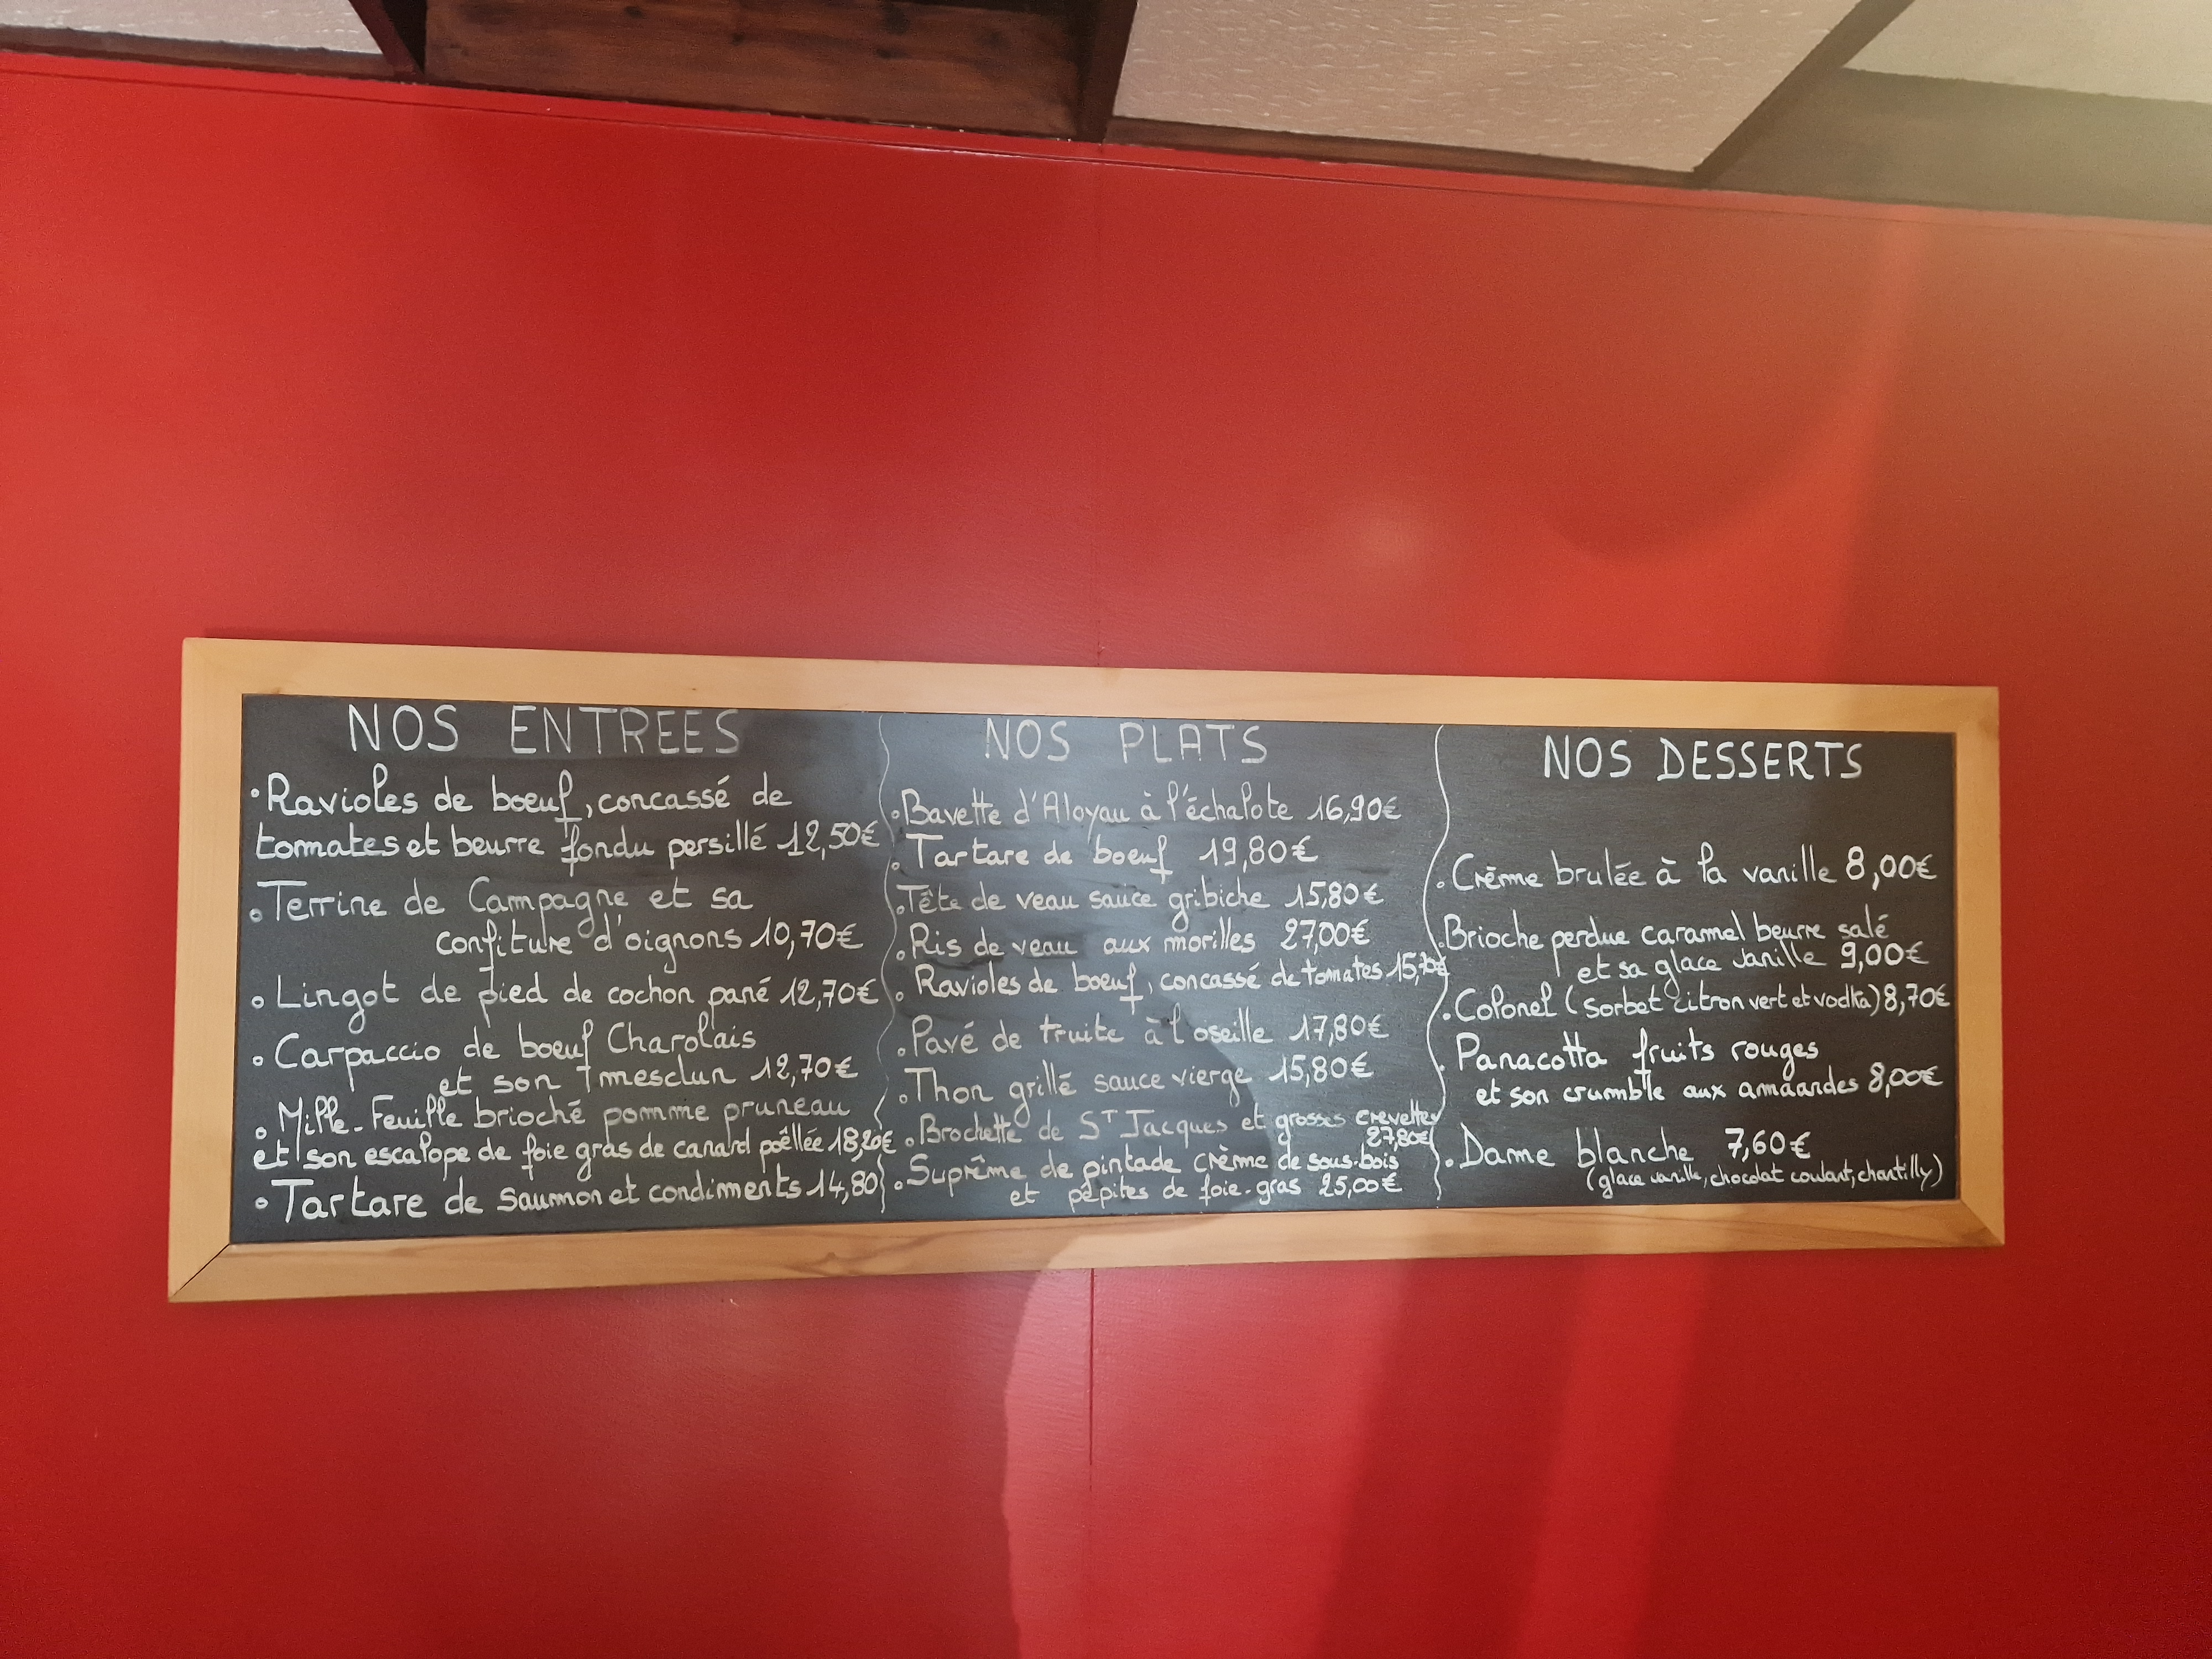 NOS ENTREES
• Ravioles de boeuf, concassé de
tomates et beurre fondu persillé 12,50€
• Terrine de Campagne et sa
confiture d'oignons 10,70€
• Lingot de pied de cochon pané 12,70€
• Carpaccio de boeuf Charolais
et son mesclun 12,70€
• Mille-Feuille brioché pomme pruneau
et son escalope de foie gras de canard poêllée 18,20€
• Tartare de saumon et condiments 14,80
NOS PLATS
• Bavette d'Aloyau à l'échalote 16,90€
• Tartare de boeuf 19,80€
• Tête de veau sauce gribiche 15,80€
• Ris de veau aux morilles 27,00€
• Ravioles de boeuf, concassé de tomates 15,70€
• Pavé de truite à l'oseille 17,80€
• Thon grillé sauce vierge 15,80€
• Brochette de ST Jacques et grosses crevettes
27,80€
• Suprême de pintade crème de sous-bois
et pépites de foie-gras 25,00€
NOS DESSERTS
• Crème brulée à la vanille 8,00€
• Brioche perdue caramel beurre salé
et sa glace vanille 9,00€
• Colonel (sorbet citron vert et vodka) 8,70€
• Panacotta fruits rouges
et son crumble aux amaandes 8,00€
• Dame blanche 7,60€
(glace vanille, chocolat coulant, chantilly)